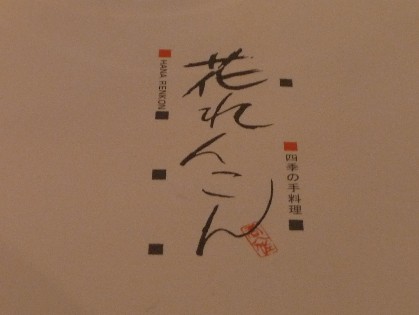 四季の手料理
花れんこん
HANA RENKON